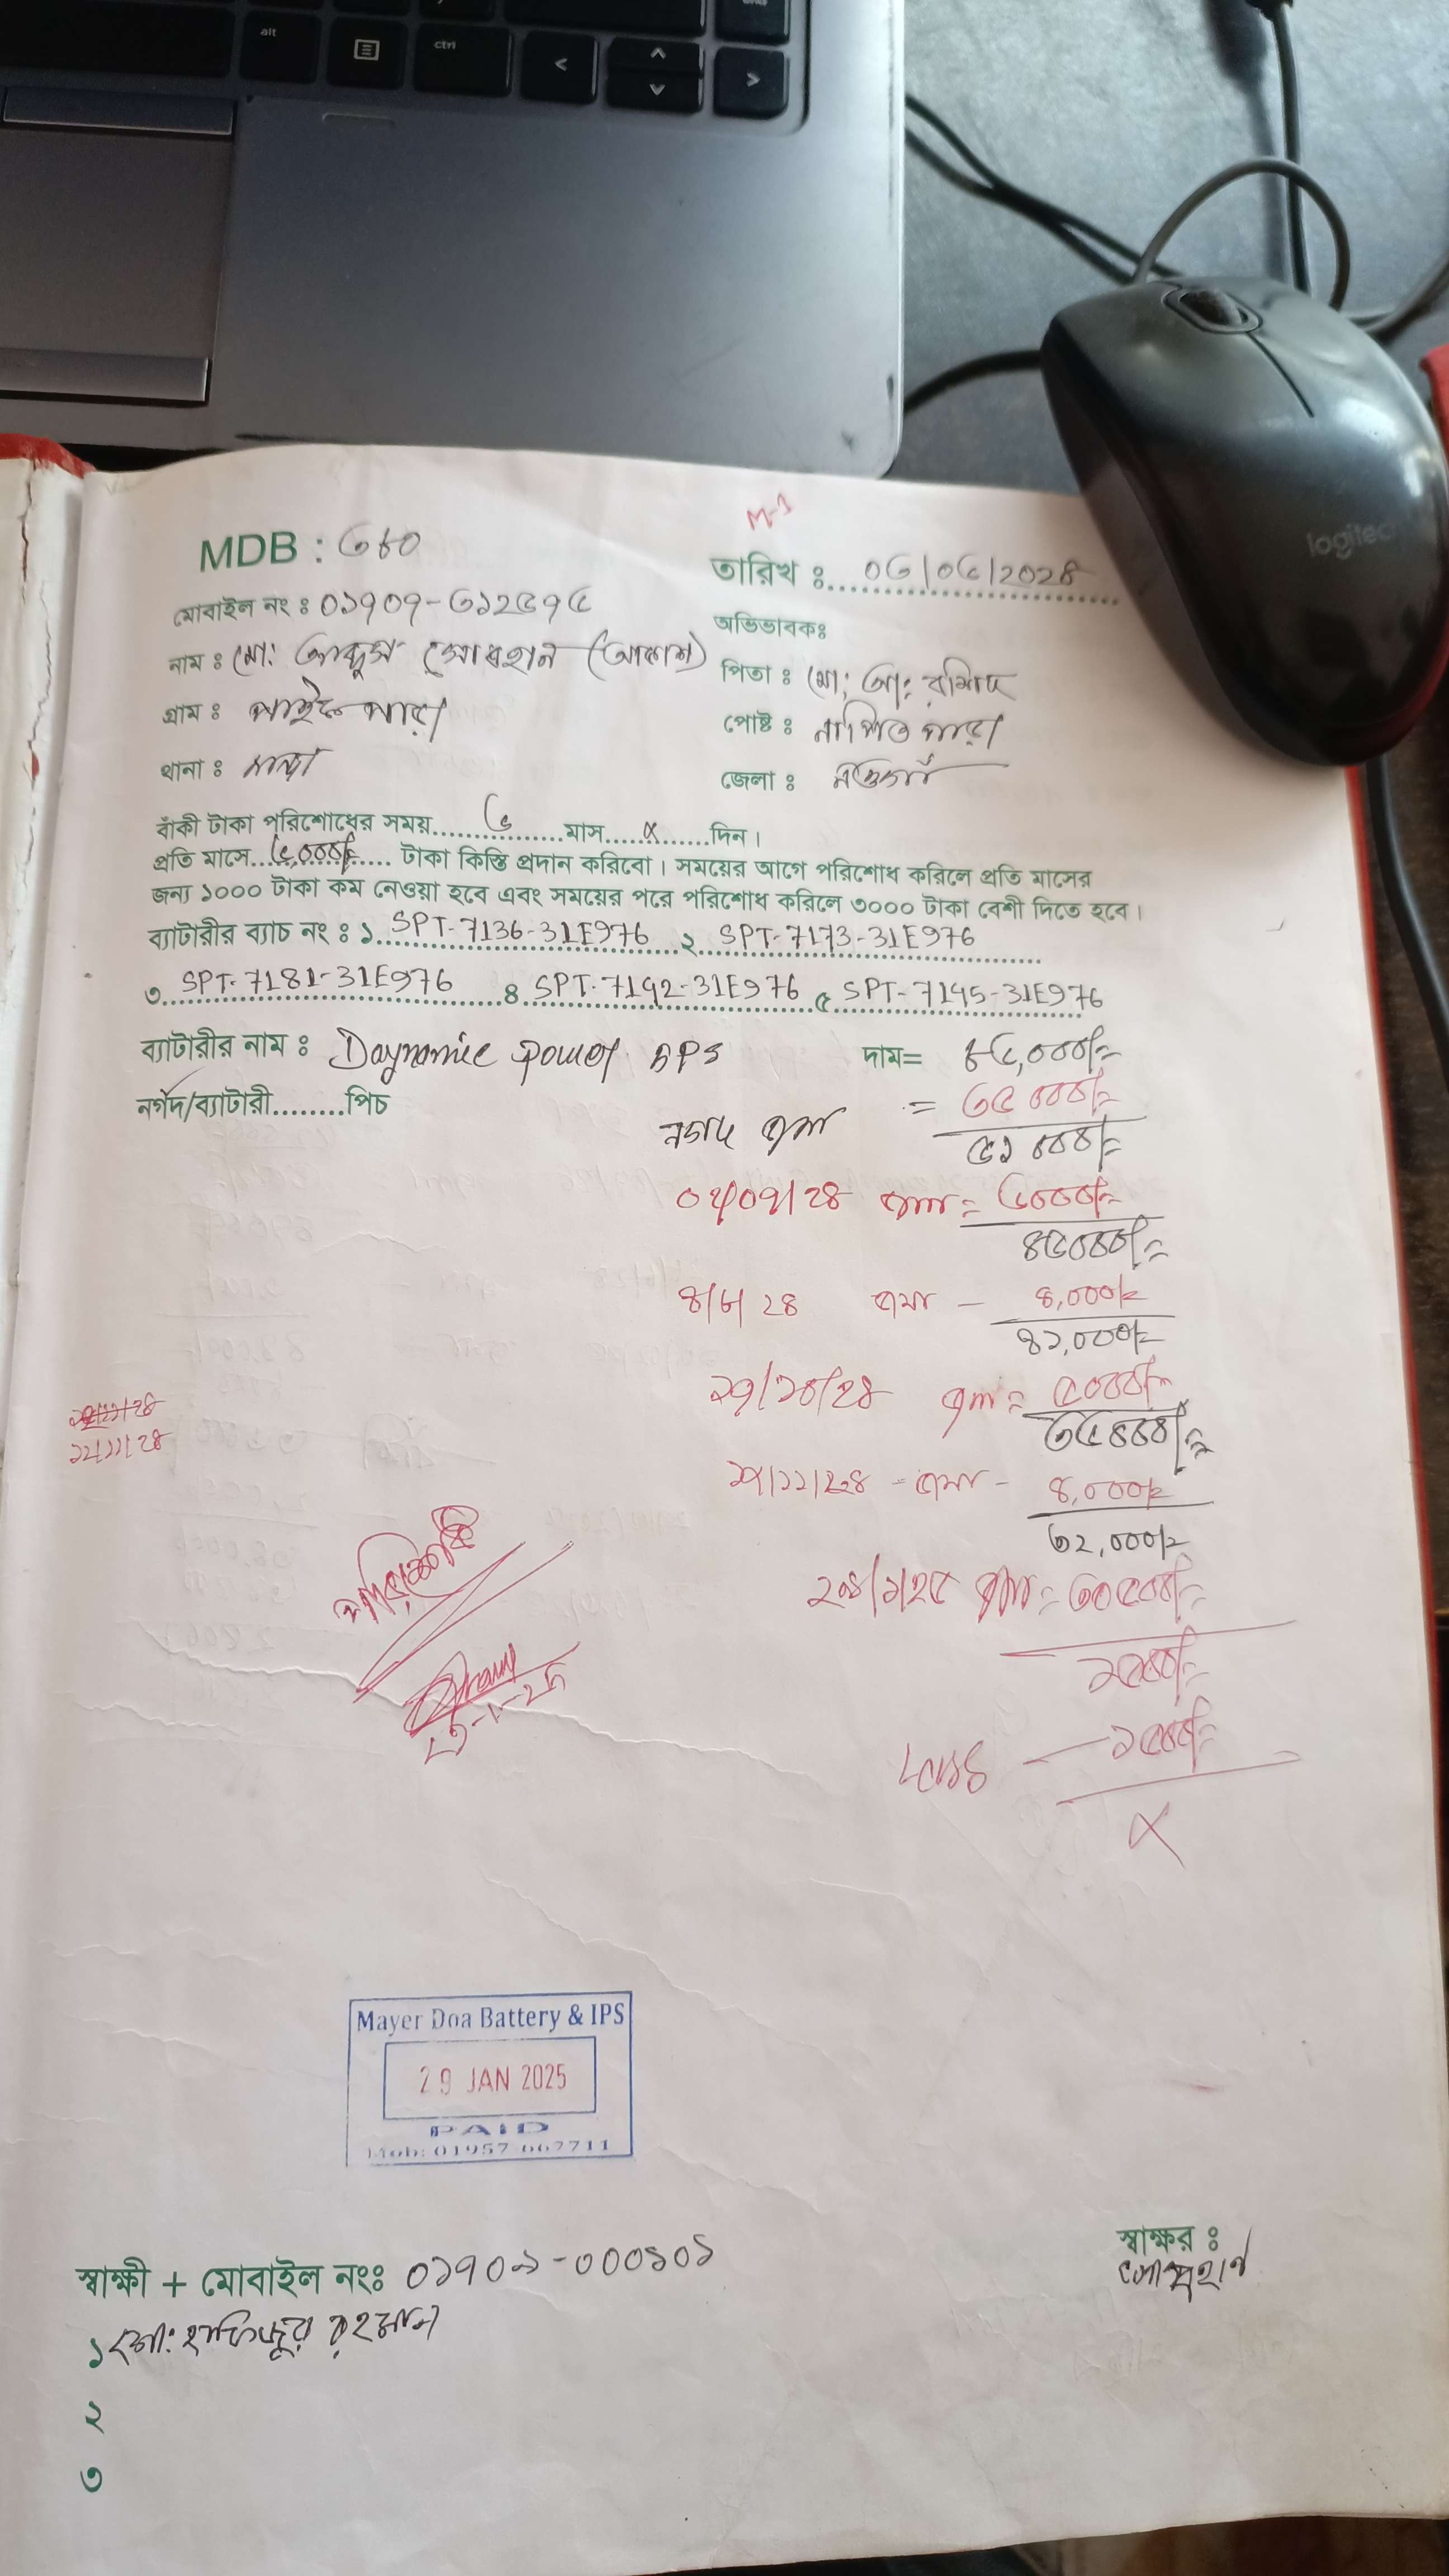 alt
ctrl
logitech
M-1
MDB : ৩৮০
তারিখ ঃ ০৩/০৬/2০2৪
মোবাইল নং ঃ ০১৭০৭-৬১২৫৭৫
অভিভাবকঃ
নাম ঃ মো: সোবহান (আকাশ)
পিতা ঃ মো: আ: রশিদ
গ্রাম ঃ পাইক পাড়া
পোষ্ট ঃ নাপিত পাড়া
থানা ঃ মান্দা
জেলা ঃ নওগাঁ
বাঁকী টাকা পরিশোধের সময়..........৬..........মাস.....×......দিন।
প্রতি মাসে...৬,০০০/=.... টাকা কিস্তি প্রদান করিবো। সময়ের আগে পরিশোধ করিলে প্রতি মাসের
জন্য ১০০০ টাকা কম নেওয়া হবে এবং সময়ের পরে পরিশোধ করিলে ৩০০০ টাকা বেশী দিতে হবে।
ব্যাটারীর ব্যাচ নং ঃ ১. SPT-7136-31E976 ২ SPT-7173-31E976
৩. SPT-7181-31E976 ৪ SPT-7192-31E976 ৫ SPT-7195-31E976
ব্যাটারীর নাম ঃ Daynamic Power দাম= ৮৬,০০০/=
নগদ/ব্যাটারী........পিচ
নগদ জমা = ৩৫০০০/=
৫১০০০/=
জমা = ৬০০০/=
৪৫০০০/=
৪/৮/২৪ জমা – ৪,০০০/=
৪১,০০০/=
২৭/১০/২৪ জমা = ৫০০০/=
৩৬০০০/=
জমা - ৪,০০০/=
৩২,০০০/=
জমা = ৩০৫০০/=
১৫০০/=
Less — ১৫০০/=
×
১২/১১/২৪
পরিশোধ
Mayer Doa Battery & IPS
29 JAN 2025
PAID
Mob: 01957 667711
স্বাক্ষর ঃ
সোবহান
স্বাক্ষী + মোবাইল নংঃ
১ মো: হাফিজুর রহমান
২
৩